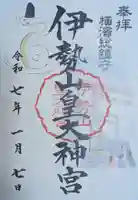 奉拝
横濱総鎮守
伊勢山皇大神宮
令和七年一月七日